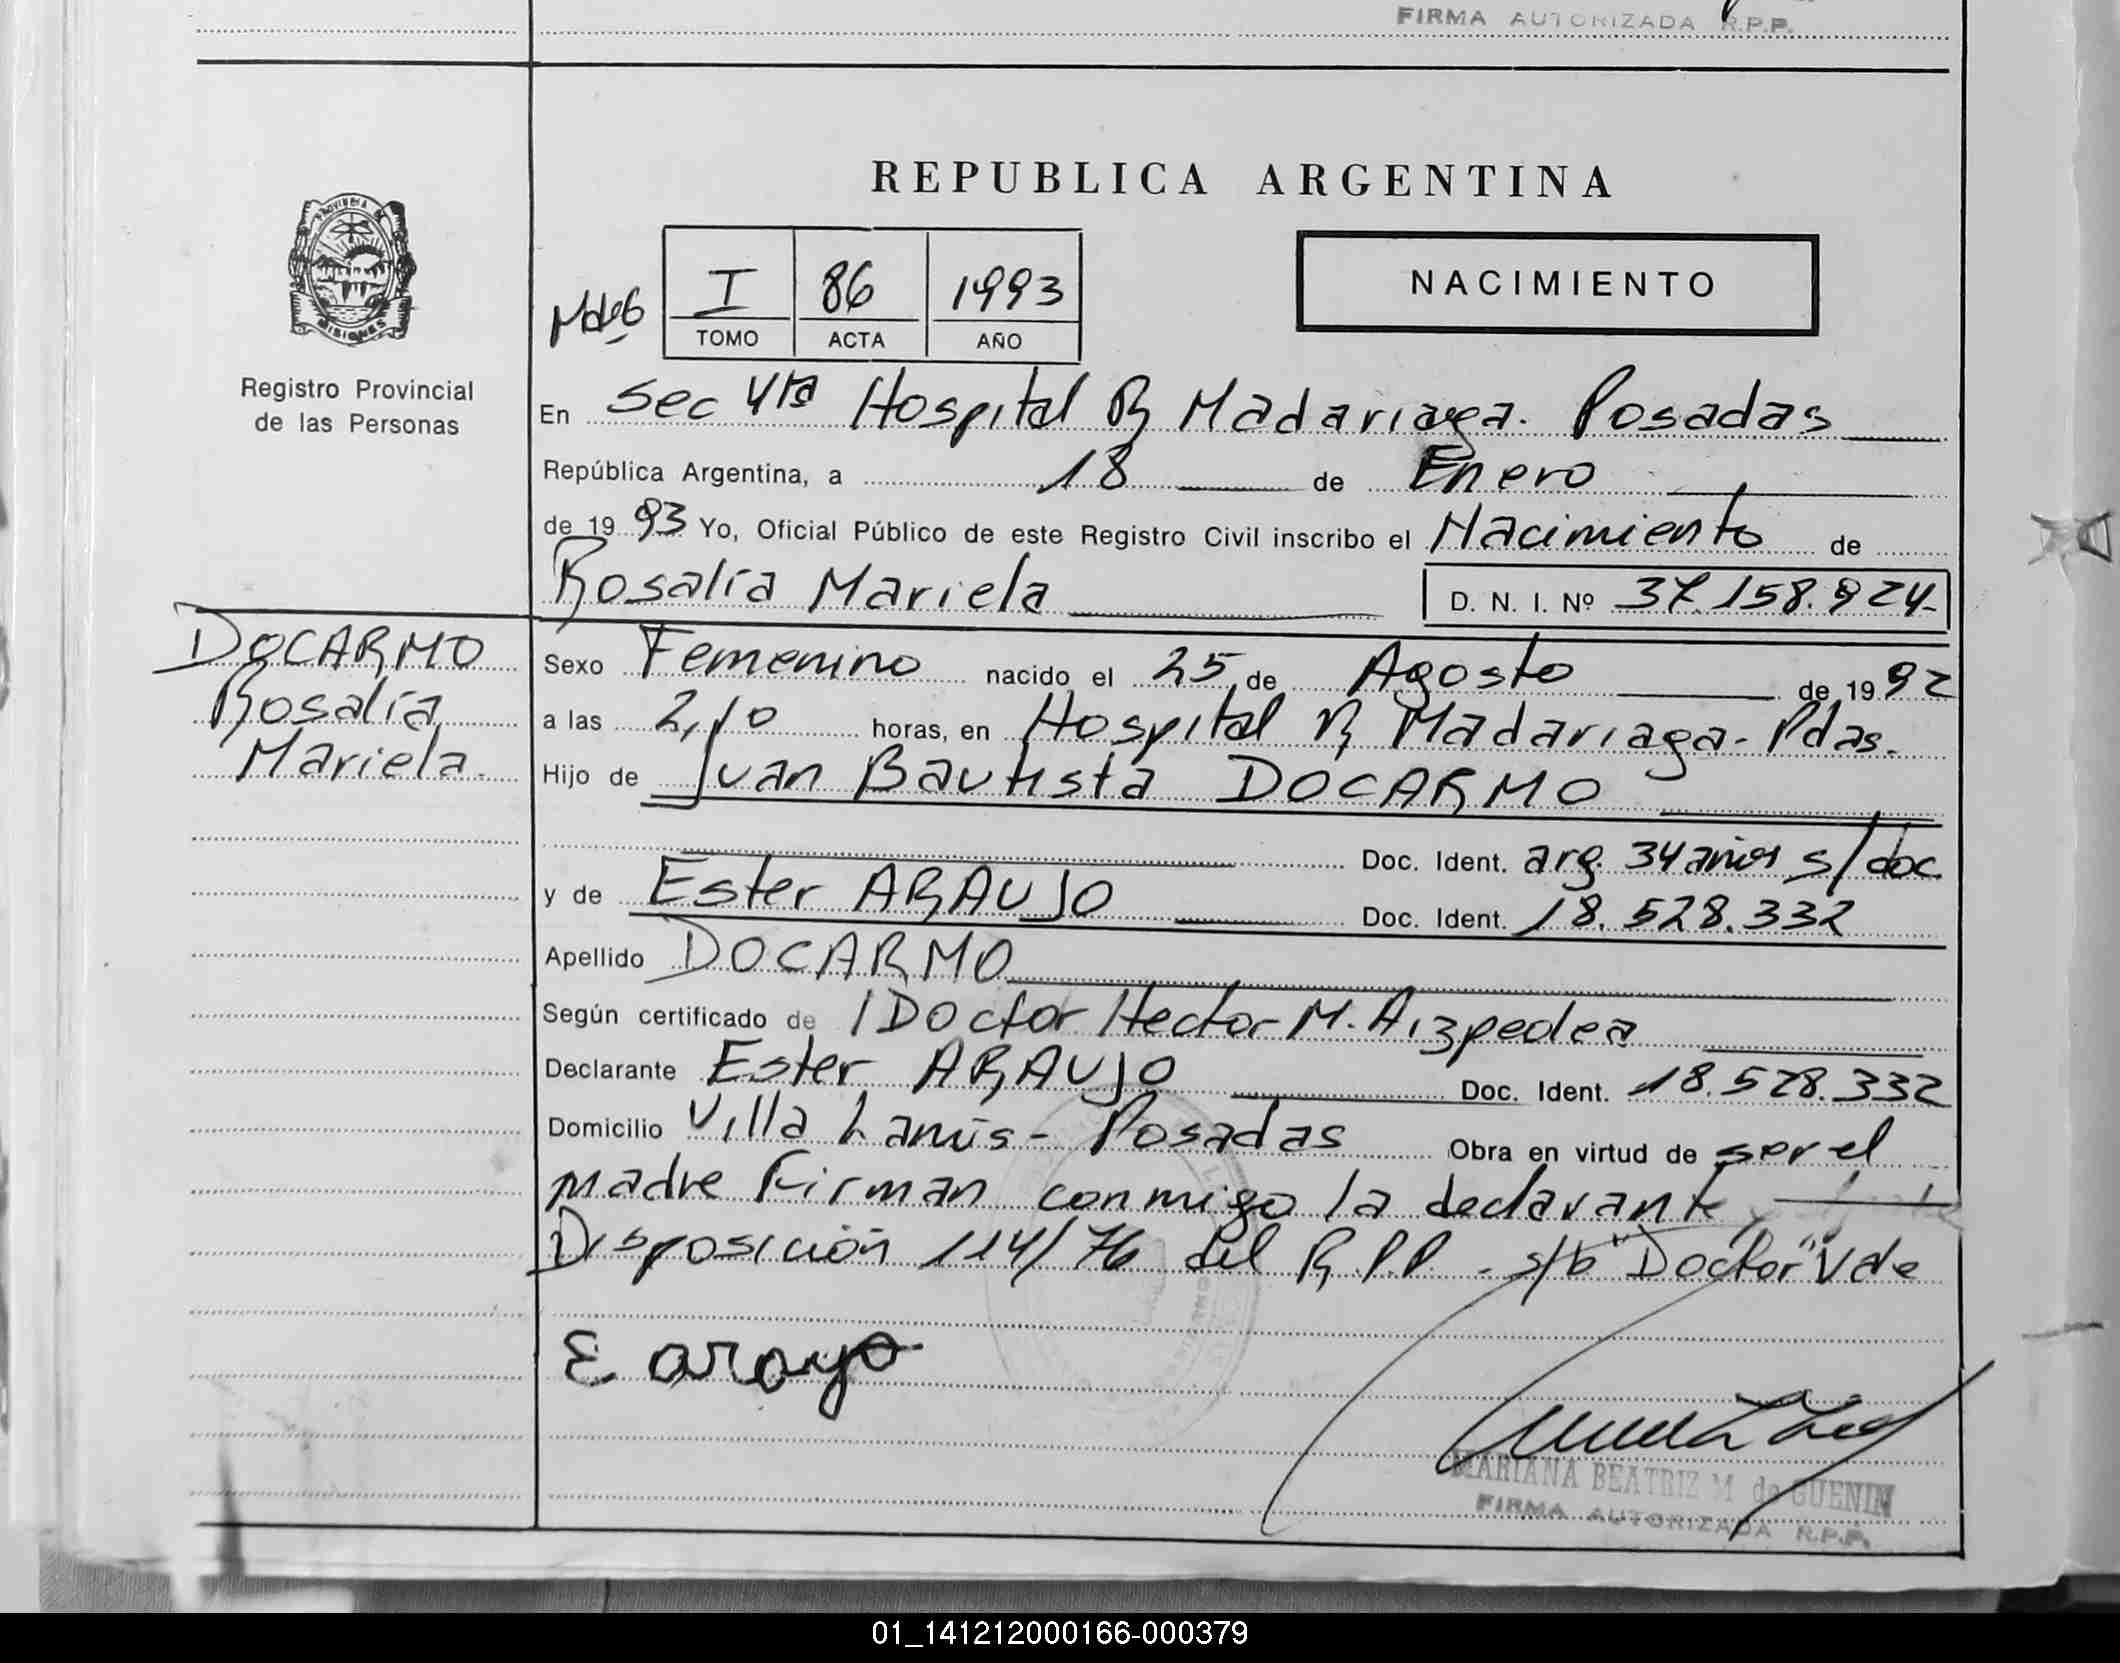 FIRMA AUTORIZADA R.P.P.
PROVINCIA DE
MISIONES
Registro Provincial
de las Personas
REPUBLICA ARGENTINA
I 86 1993
TOMO ACTA AÑO
NACIMIENTO
En Sec 4ta Hospital R Madariaga. Posadas
República Argentina, a 18 de Enero
de 19 93 Yo, Oficial Público de este Registro Civil inscribo el Nacimiento de
Rosalía Mariela D. N. I. Nº 37.158.924-
DOCARMO
Rosalía
Mariela.
Sexo Femenino nacido el 25 de Agosto de 19 92
a las 2,10 horas, en Hospital R Madariaga- Pdas.
Hijo de Juan Bautista DOCARMO
Doc. Ident. arg. 34 años s/doc
y de Ester ARAUJO Doc. Ident. 18.528.332
Apellido DOCARMO
Según certificado de / Doctor Hector M. Aizpeolea
Declarante Ester ARAUJO Doc. Ident. 18.528.332
Domicilio Villa Lanús - Posadas Obra en virtud de ser el
madre Firman conmigo la declarante
Disposición 114/76 del R.P.P. s/b "Doctor" Vale
E arayo
MARIANA BEATRIZ M de GUENIN
FIRMA AUTORIZADA R.P.P.
01_141212000166-000379